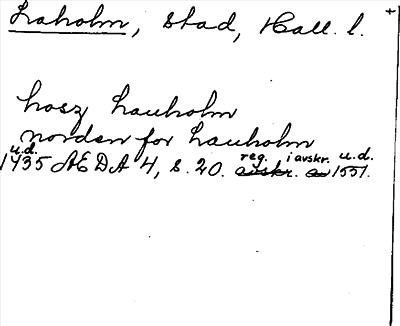 Laholm, Stad, Hall. l. +
hosz Lauholm
norden for Lauholm
u.d. reg. i avskr. u.d.
1435 AEDA 4, s. 20. avskr. av 1551.